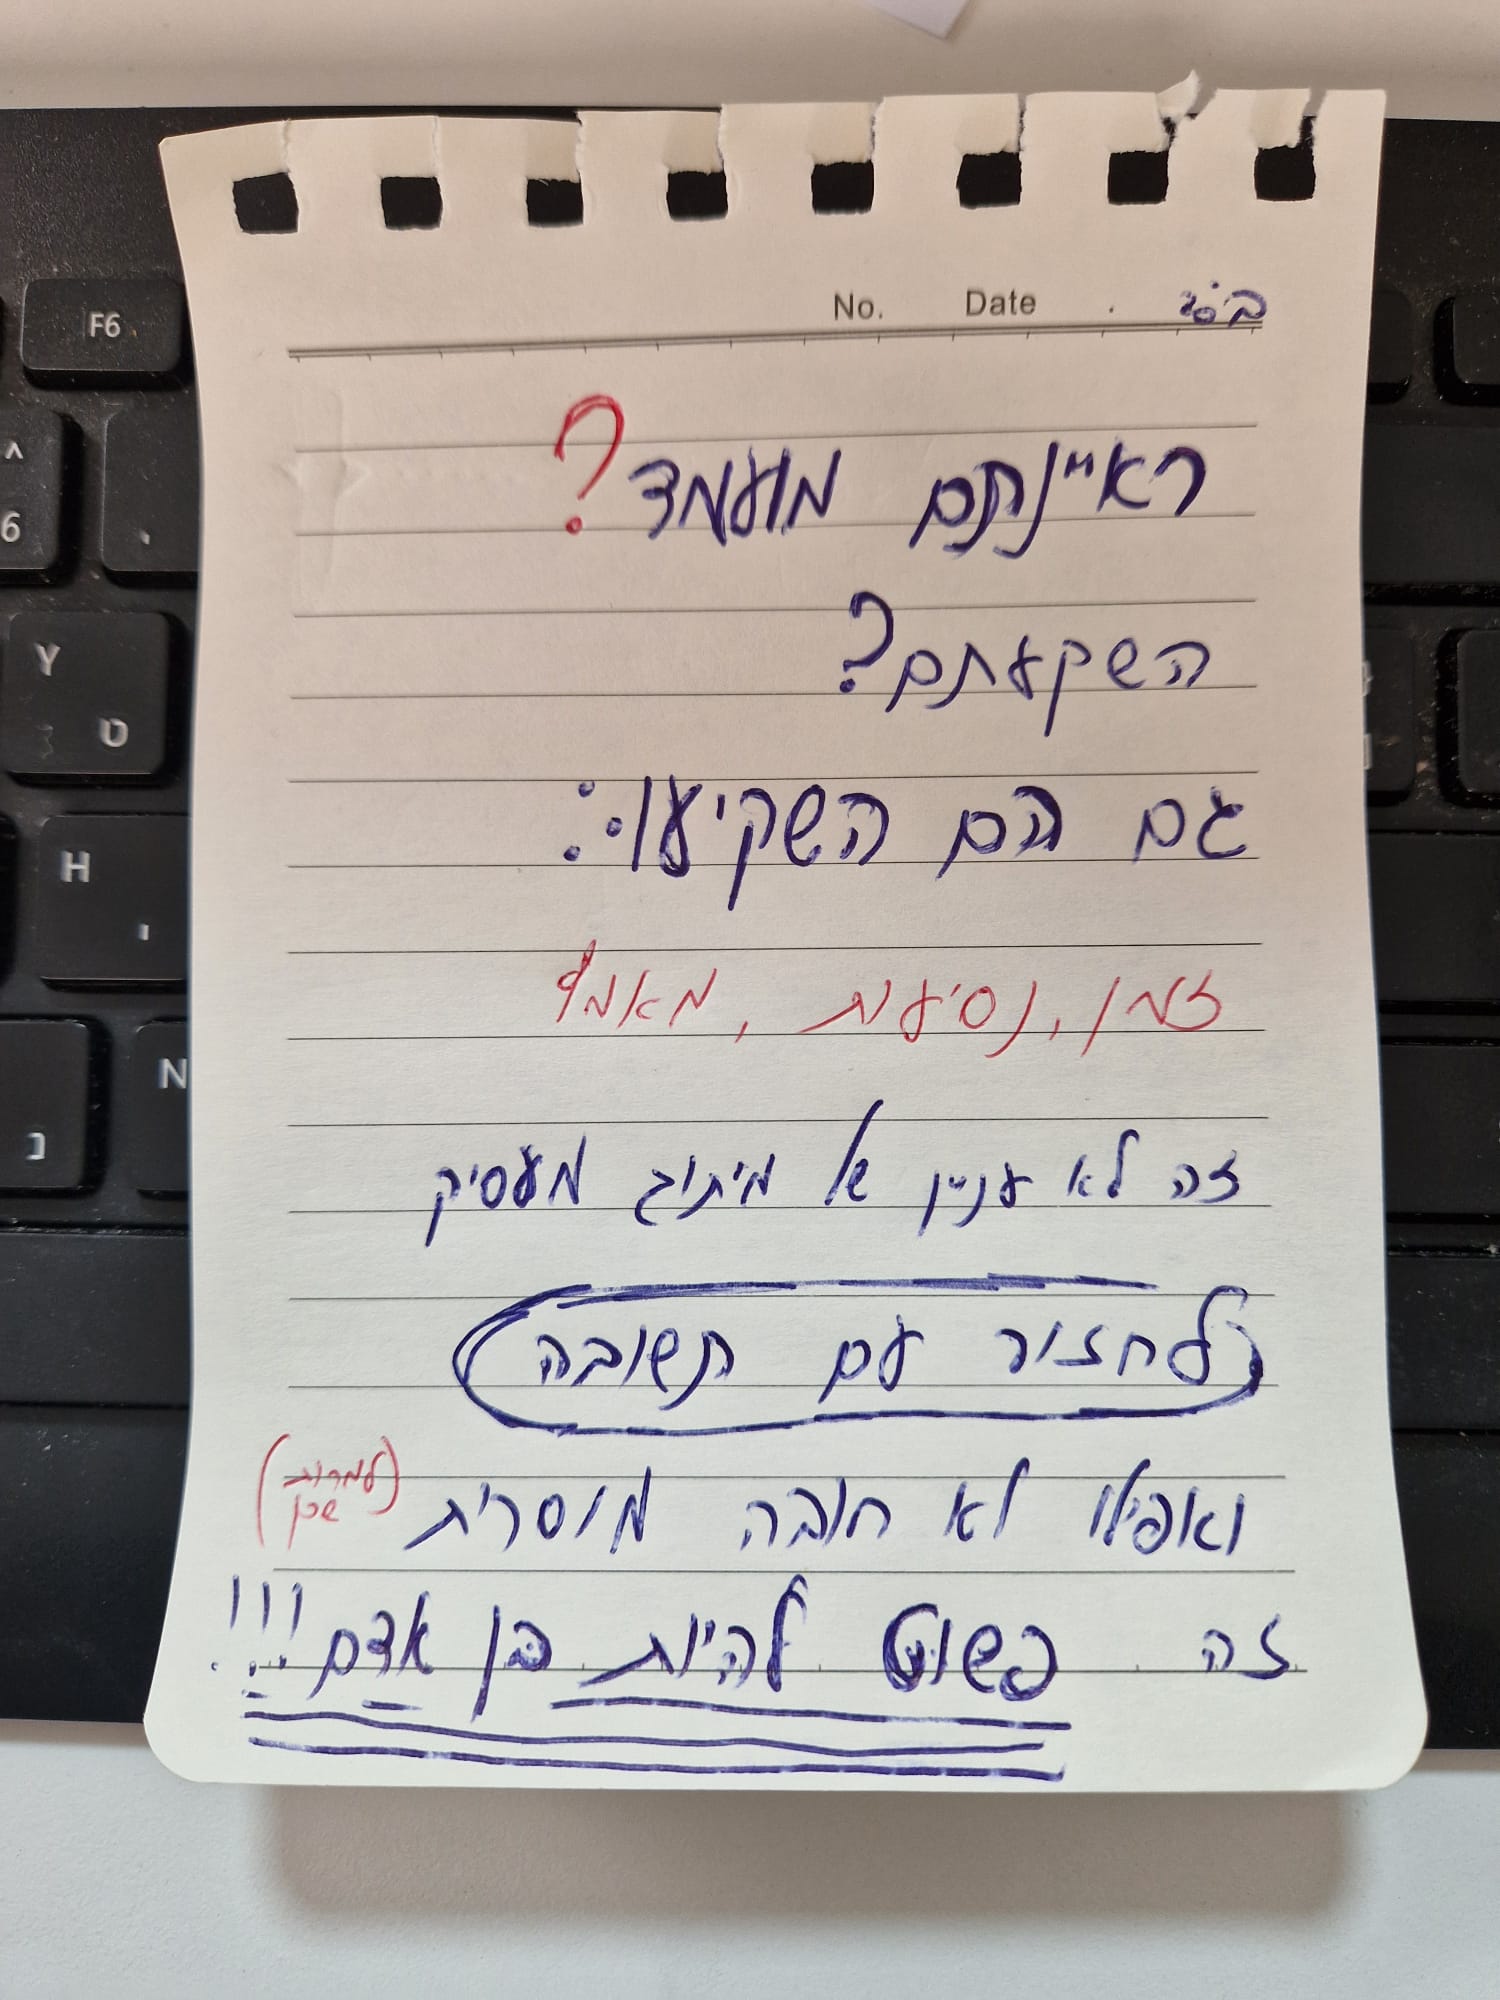 No. Date ב"ה
ראיינתם מועמד?
השקעתם?
גם הם השקיעו:
זמן, נסיעות, מאמץ
זה לא עניין של מיתוג מעסיק
לחזור עם תשובה
ואפילו לא חובה מוסרית (למרות שכן)
זה פשוט להיות בן אדם!!!
F6
^
6
Y
ט
H
י
N
כ